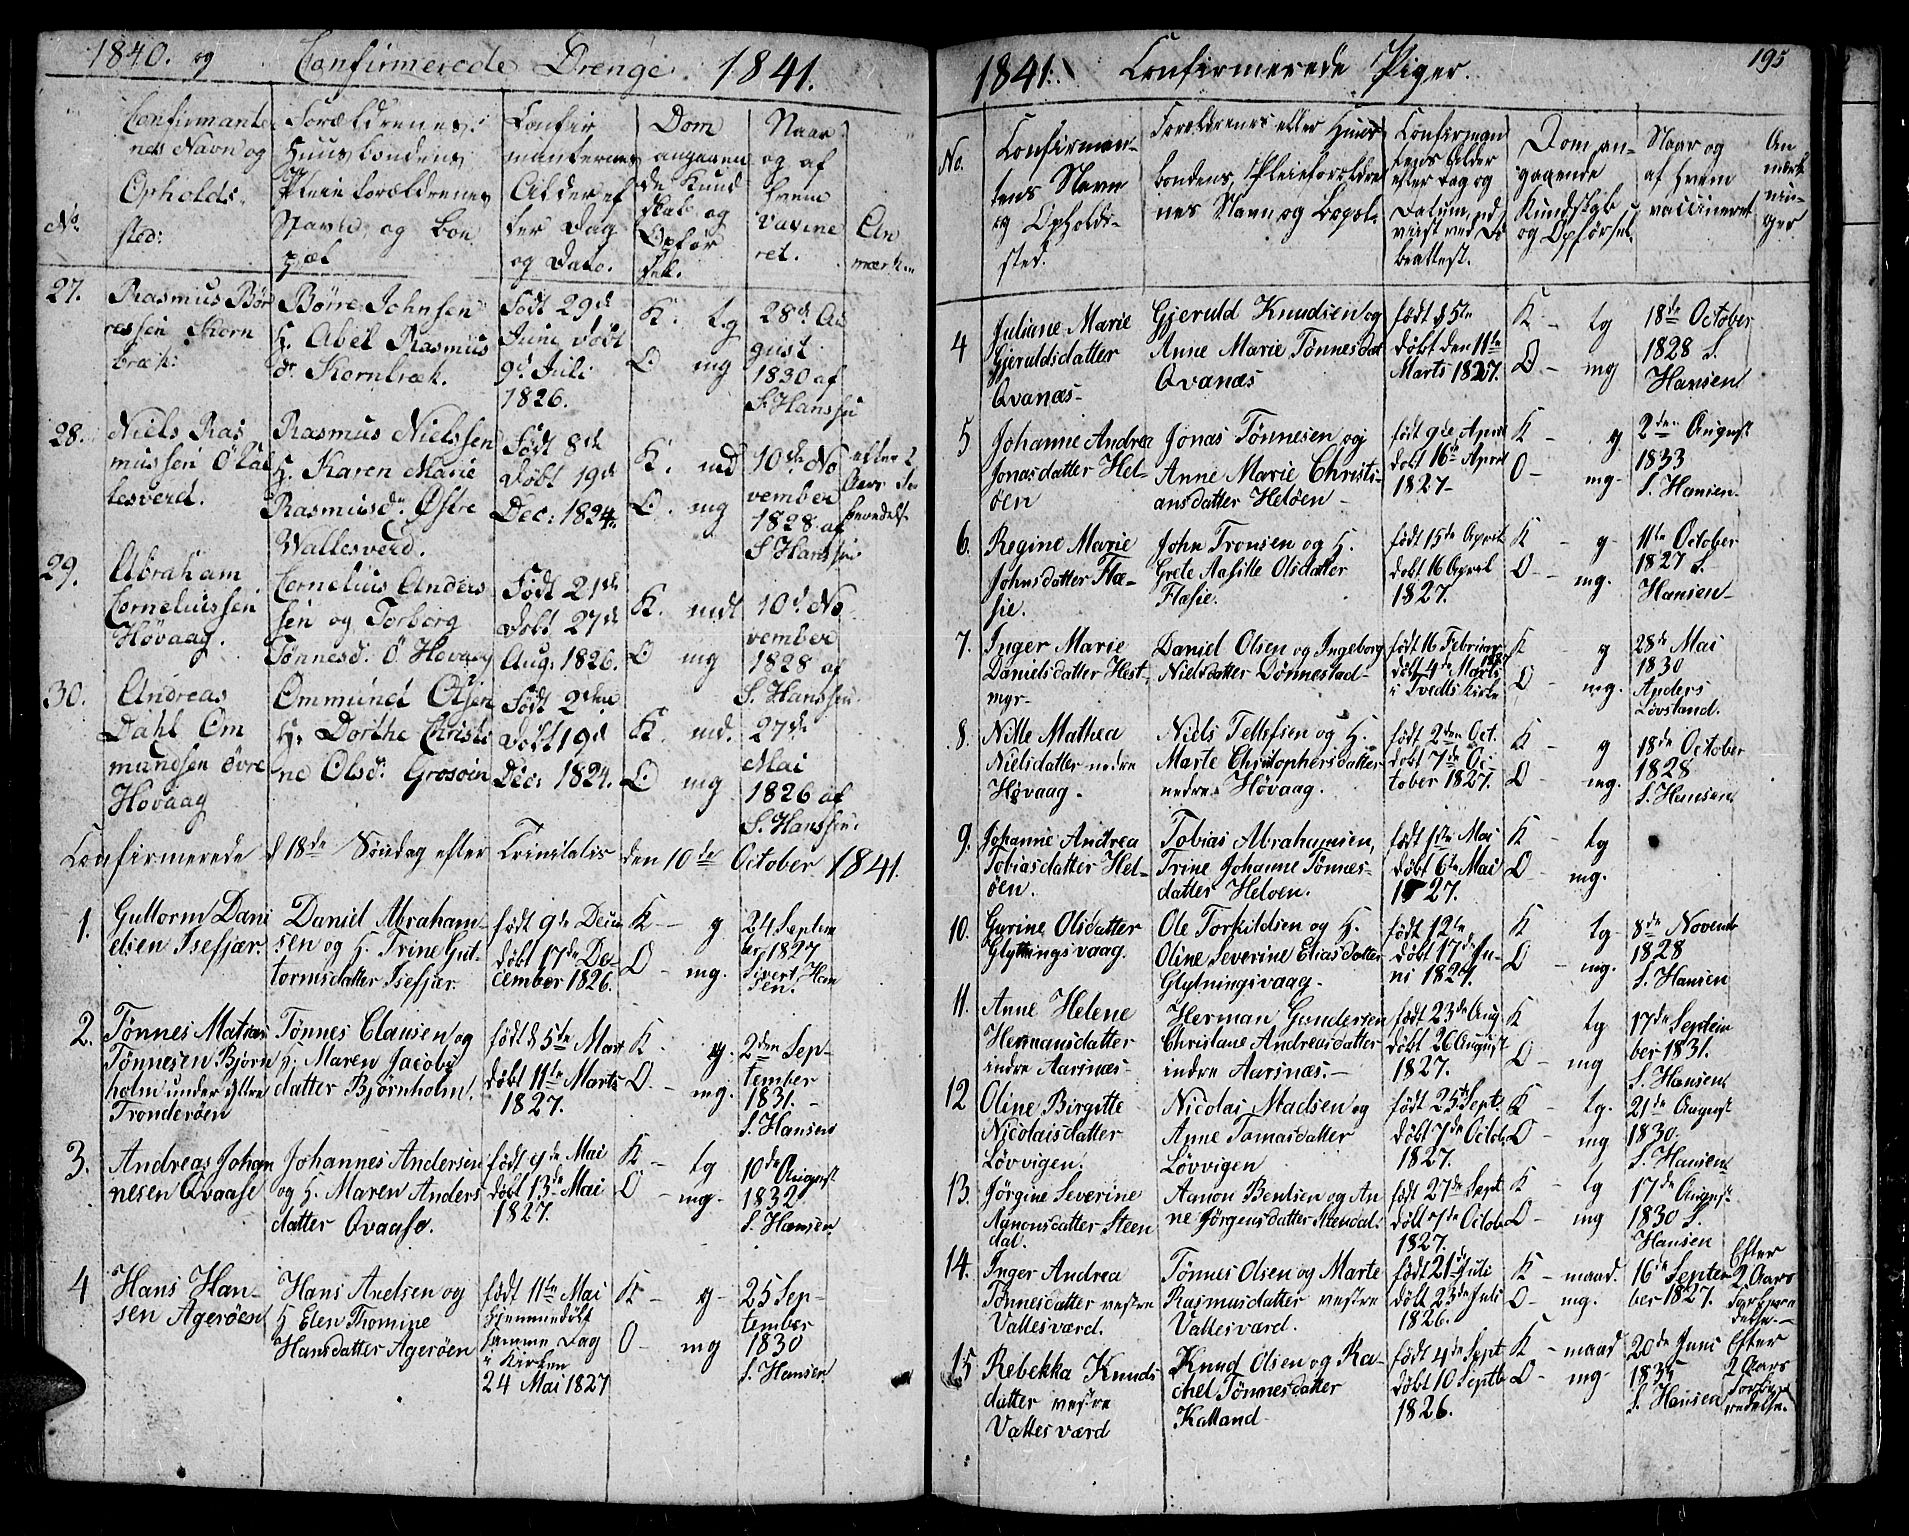 1840. og Confirmerede Drenge. 1841.
No.
Confirmanter
nes Navn og
Opholds.
sted:
Forældrenes:
Huusbondens
Pleieforældrenes
Navn og Bou
pæl
Confir
manternes
Alder ef
ter Dag
og Dato.
Dom
angaaen
de Kund
skab og
Opfør
sel.
Naar
og af
hvem
vavine
ret.
An
mærkn
27.
Rasmus Bør
ressen Korn
bræk:
Børre Johnsen
H. Abel Rasmus
dr Kornbræk.
Født 29d
Juni døbt
9d Juli
1826.
K. tg
O. mg
28d Au
gust
1830 af
S. Hanssen
28.
Niels Ras
mussen
lesverd.
Rasmus Nielssen
H. Karen Marie
Rasmusdr Østre
Wallesverd.
Født 8de
Døbt 19d
Dec: 1824.
K. md
O. mg
10de No
vember
1828 af
S. Hanssen
efter 2
Aars
beredelse
29.
Abraham
Corneliussen
Høvaag.
Cornelius Anders
sen og Torborg
Tønnesd. Ö. Høvaag
Født 21de
Døbt 27d
Aug: 1826.
K. mdt
O mg
10d No
vember
1828 af
S. Hanssen.
30.
Andreas
Dahl Om
mundsen øvre
Høvaag
Ommund Olsen
H. Dorthe Christi
ne Olsd. Grosøin
Født 2den
Døbt 19d
Dec: 1824.
K. md.
O. mg
27de
Mai
1826 af
S. Hanssen.
Confirmerede d 18de Søndag efter Trinitatis den 10de October 1841.
1.
Guttorm Dani
elsen Isefjær.
Daniel Abraham-
sen og H. Trine Gut-
tormsdatter Isefjær.
født 9de Decm
døbt 17de De-
cember 1826.
K - g
O - mg.
24 Septem
ber 1827
Sivert Han
sen.
2.
Tønnes Mathias
Tønnesen Bjørn
holm under Ytre
Tronderöen
Tønnes Clausen og
H. Maren Jacobs
datter Bjørnholm.
født d 5te Mart
døbt 11te Marts
1827.
K - g.
O. - mg.
2den Sep-
tember
1831. -
S. Hansen
3.
Andreas Johan
nesen Qvaase
Johannes Andersen
og H. Maren Anders
datter Qvaase.
født 9de Mai
døbt 13de Mai
1827.
K - tg
O - mg.
10de August
1832
S. Hansen.
4
Hans Han-
sen Agerøen
Hans Axelsen og
H Elen Thomine
Hansdatter Agerøen
født 11te Mai
Hjemmedøbt
samme Dag
i Kirken
24 Mai 1827
K - g -
O - mg
25 Sep-
tember
1830
S. Hansen
1841. Confirmerede Piger. 195
No.
Confirman-
tens Navn
og Opholds-
sted.
Forældrenes eller Huus-
bondens, Pleieforældre
nes Navn og Bopæl.
Confirman
tens Alder
efter Dag og
Datum, ud
viist ved Dø
beattest.
Dom an-
gaaende
Kundskab
og Opførsel.
Naar og
af hvem
vaccineret
An
mærk
nin-
ger
4
Juliane Marie
Gjeruldsdatter
Qvanæs-
Gjeruld Knudsen og
Anne Marie Tønnesdat
Qvanæs
født d 5te
døbt den 11te
Marts 1827.
K - tg
O - mg
18de October
1828 S.
Hansen
5
Johanne Andrea
Jonasdatter Hel-
öen
Jonas Tönnesen og
Anne Marie Christi-
ansdatter Helöen -
født 9de April
døbt 16de April
1827-
K - g.
O - mg.
2den August
1833
S. Hansen.
6.
Regine Marie
Johnsdatter Flæ-
sie.
John Tronsen og H.
Grete Aasille Olsdatter
Flæsie.
født 15de April
døbt 16 April
1827.
K - g-
O - mg.
11te October
1827 S.
Hansen-
7.
Inger Marie
Danielsdatter Hest-
myr-
Daniel Olsen og Ingeborg
Nielsdatter Dønnestad-
født 16 Februar
døbt 4de Marts
i Tvedts Kirke
K - g
O - mg.
28de Mai
1830
Anders
Løvstand.
8.
Nille Mathea
Nielsdatter nedre
Høvaag-
Niels Tellefsen og H.
Marte Christophersdatter
nedre Høvaag.
født 2den Oct.
døbt 7de Oc-
tober 1827.
K - g
O - mg.
18de October
1828
S. Hansen
9.
Johanne Andrea
Tobiasdatter Hel-
öen.
Tobias Abrahamsen,
Trine Johanne Tønnes-
datter Heloen.
født 1ste Mai
døbt 6te Mai
1827.
K - tg
O - mg.
10.
Gurine Olsdatter
Glythingsvaag.
Ole Torkildsen og H.
Oline Severine Eliasdatter
Glytningsvaag-
født 12te
døbt 17de Ju-
ni 1827.
K tg-
O - mg.
8de Novemb
1828
S. Hansen
11.
Anne Helene
Hermansdatter
indre Aarsnæs-
Herman Gundersen
Christane Andreasdatter
indre Aarsnæs.-
født 23de Aug.
døbt 26 August
1827.
K tg
O - mg
17de Septem
ber 1831.
S. Hansen
12
Oline Birgitte
Nicolaisdatter
Løvvigen.
Nicolai Madsen og
Anne Tomasdatter
Løvvigen
født 25de Sept.
døbt 7de Octob
1827.
K - tg.
O - mg
21de August
1830.
S. Hansen
13.
Jørgine Severine
Aanonsdatter Steen
dal.
Aanon Bentsen og An
ne Jørgensdatter Stendal.
født 27de Sept
døbt 7de Octob
1827.
K - tg
O - mg
17de August
1830 S.
Hansen
14.
Inger Andrea
Tønnesdatter vestre
Vallesværd.
Tønnes Olsen og Marte
Rasmusdatter vestre
Vallesværd.
født 21de Juli
døbt 23de Juli
1826.
K - maad.
O - mg.
16de Septem
ber 1827.
Efter
2 Aars
forbere
delse.-
15
Rebekka Knuds
datter vestre
Vallesværd
Knud Olsen og Ra-
chel Tønnesdatter
Kalland-
født 4de Sept.
døbt 10 Septb
1826.
K - maad
O - mg-
20de Juni
1835
S. Hansen
Efter
2 Aars
forbe
redelse.